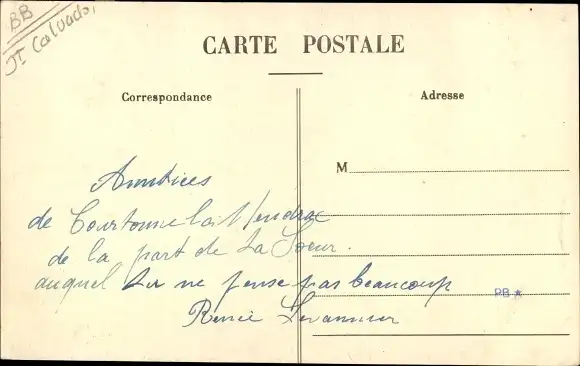 BB
Calvados
CARTE POSTALE
Correspondance
Adresse
M
Amitiées
de Courtonne la
de la part de ta Soeur.
auquel tu ne pense pas beaucoup
PB*
Renée